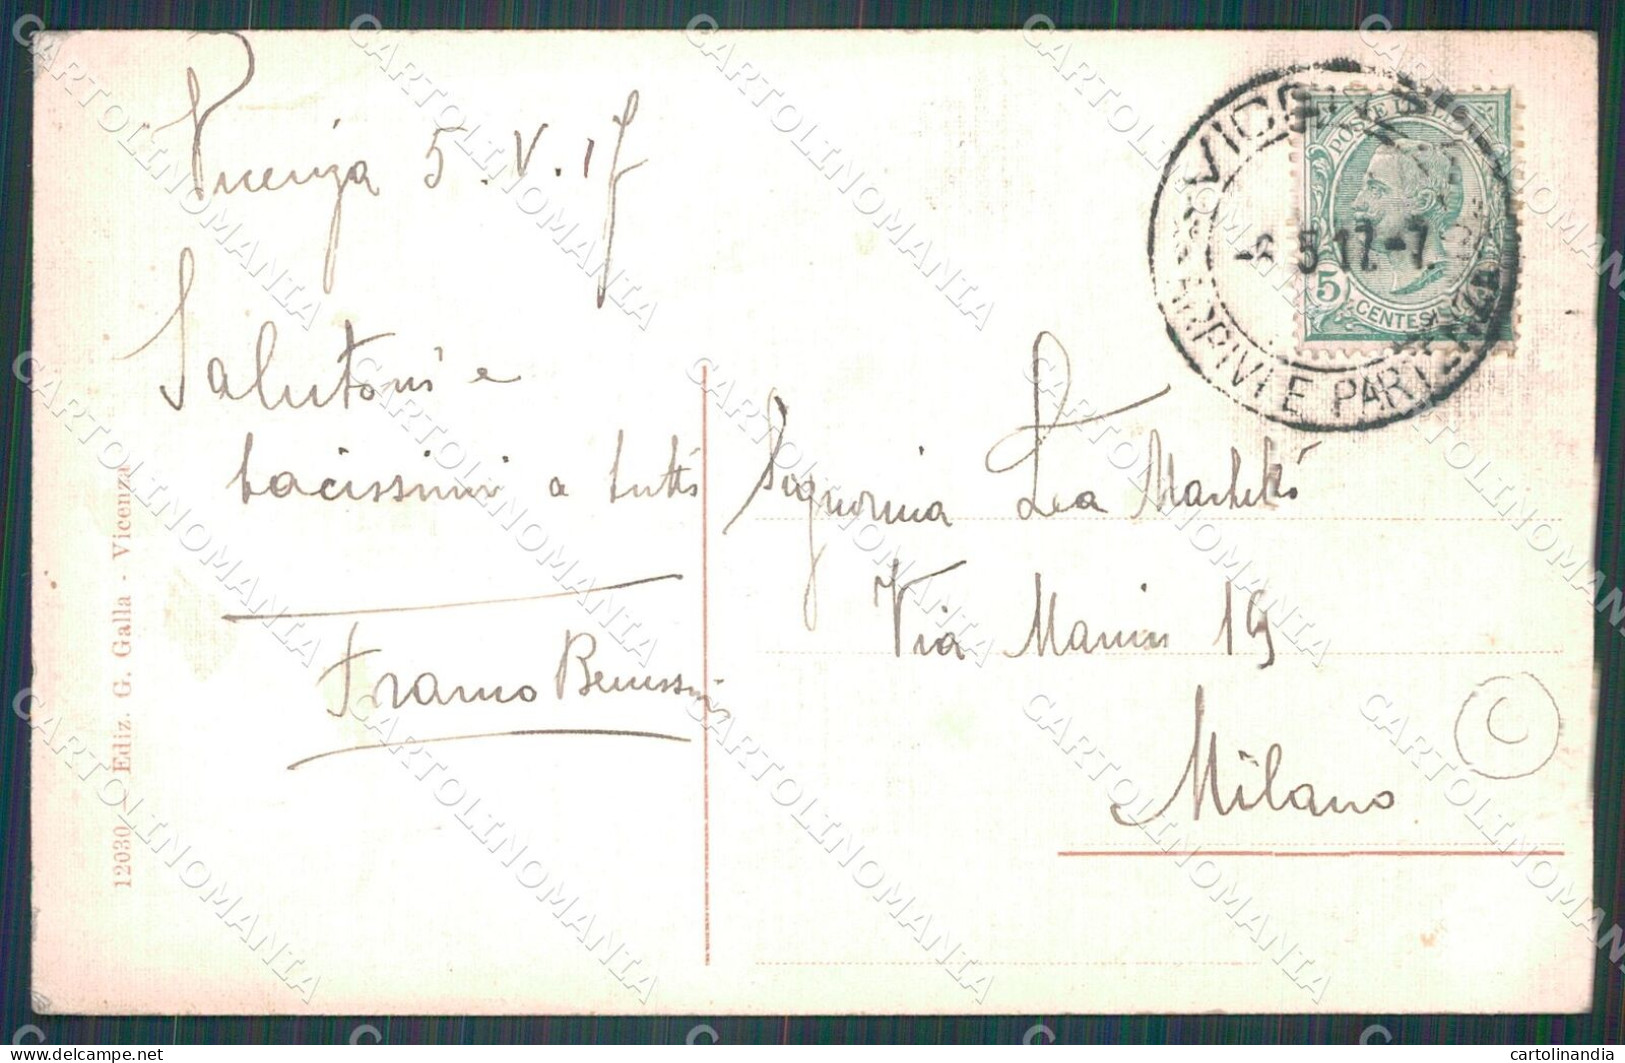 Vicenza 5.V.17
Salutoni e
bacissimi a tutti
Signorina Lea
Via Manin 19
Milano
12030 - Ediz. G. Galla - Vicenza
VICENZA
-6 5 17.-7
ARRIVI E PARTENZA
POSTE ITALIANE
5 CENTESIMI
C
CARTOLINOMANIA
cartolinandia